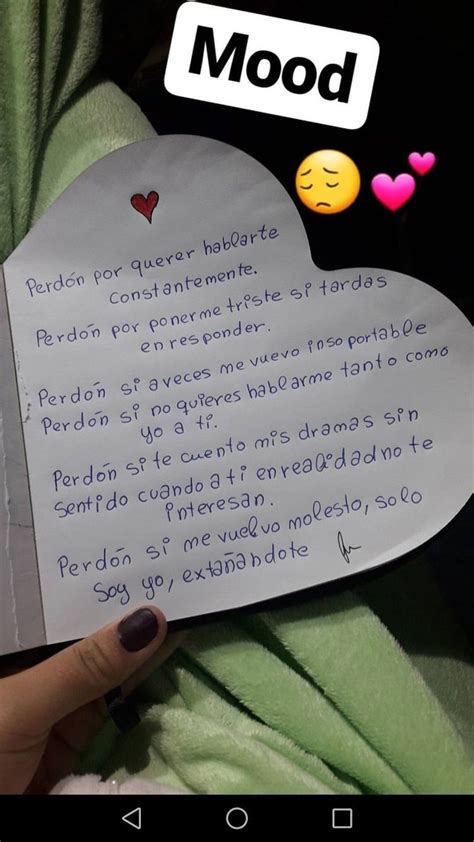 Mood
Perdón por querer hablarte
constantemente.
Perdón por ponerme triste si tardas
en responder.
Perdón si aveces me vuevo insoportable
Perdón si no quieres hablarme tanto como
yo a ti.
Perdón si te cuento mis dramas sin
sentido cuando a ti en realidad no te
interesan.
Perdón si me vuelvo molesto, solo
soy yo, extañandote